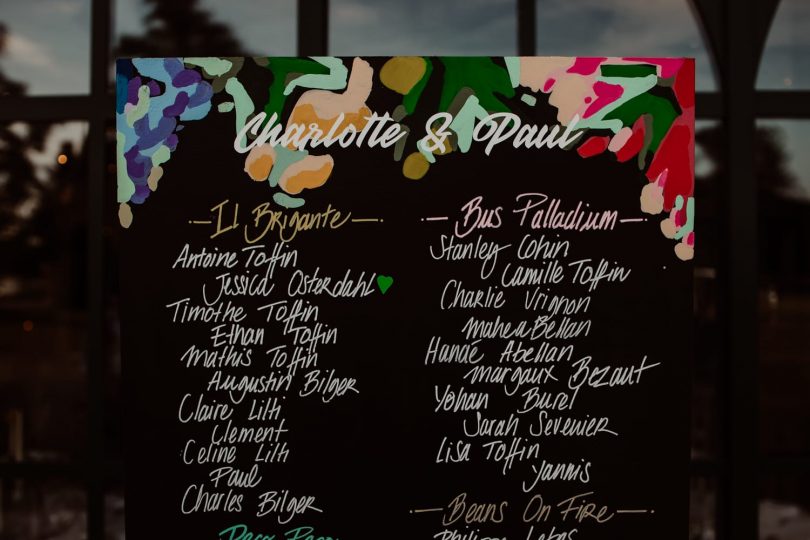 Charlotte & Paul
Il Brigante
Antoine Toffin
Jessica Osterdahl
Timothe Toffin
Ethan Toffin
Mathis Toffin
Augustin Bilger
Claire Lilti
Clement
Celine Lilti
Paul
Charles Bilger
Bus Palladium
Stanley Cohin
Camille Toffin
Charlie Vrignon
Mahea Bellan
Hanaé Abellan
Margaux Bezaut
Yohan Burel
Sarah Sevenier
Lisa Toffin
Yannis
Beans On Fire